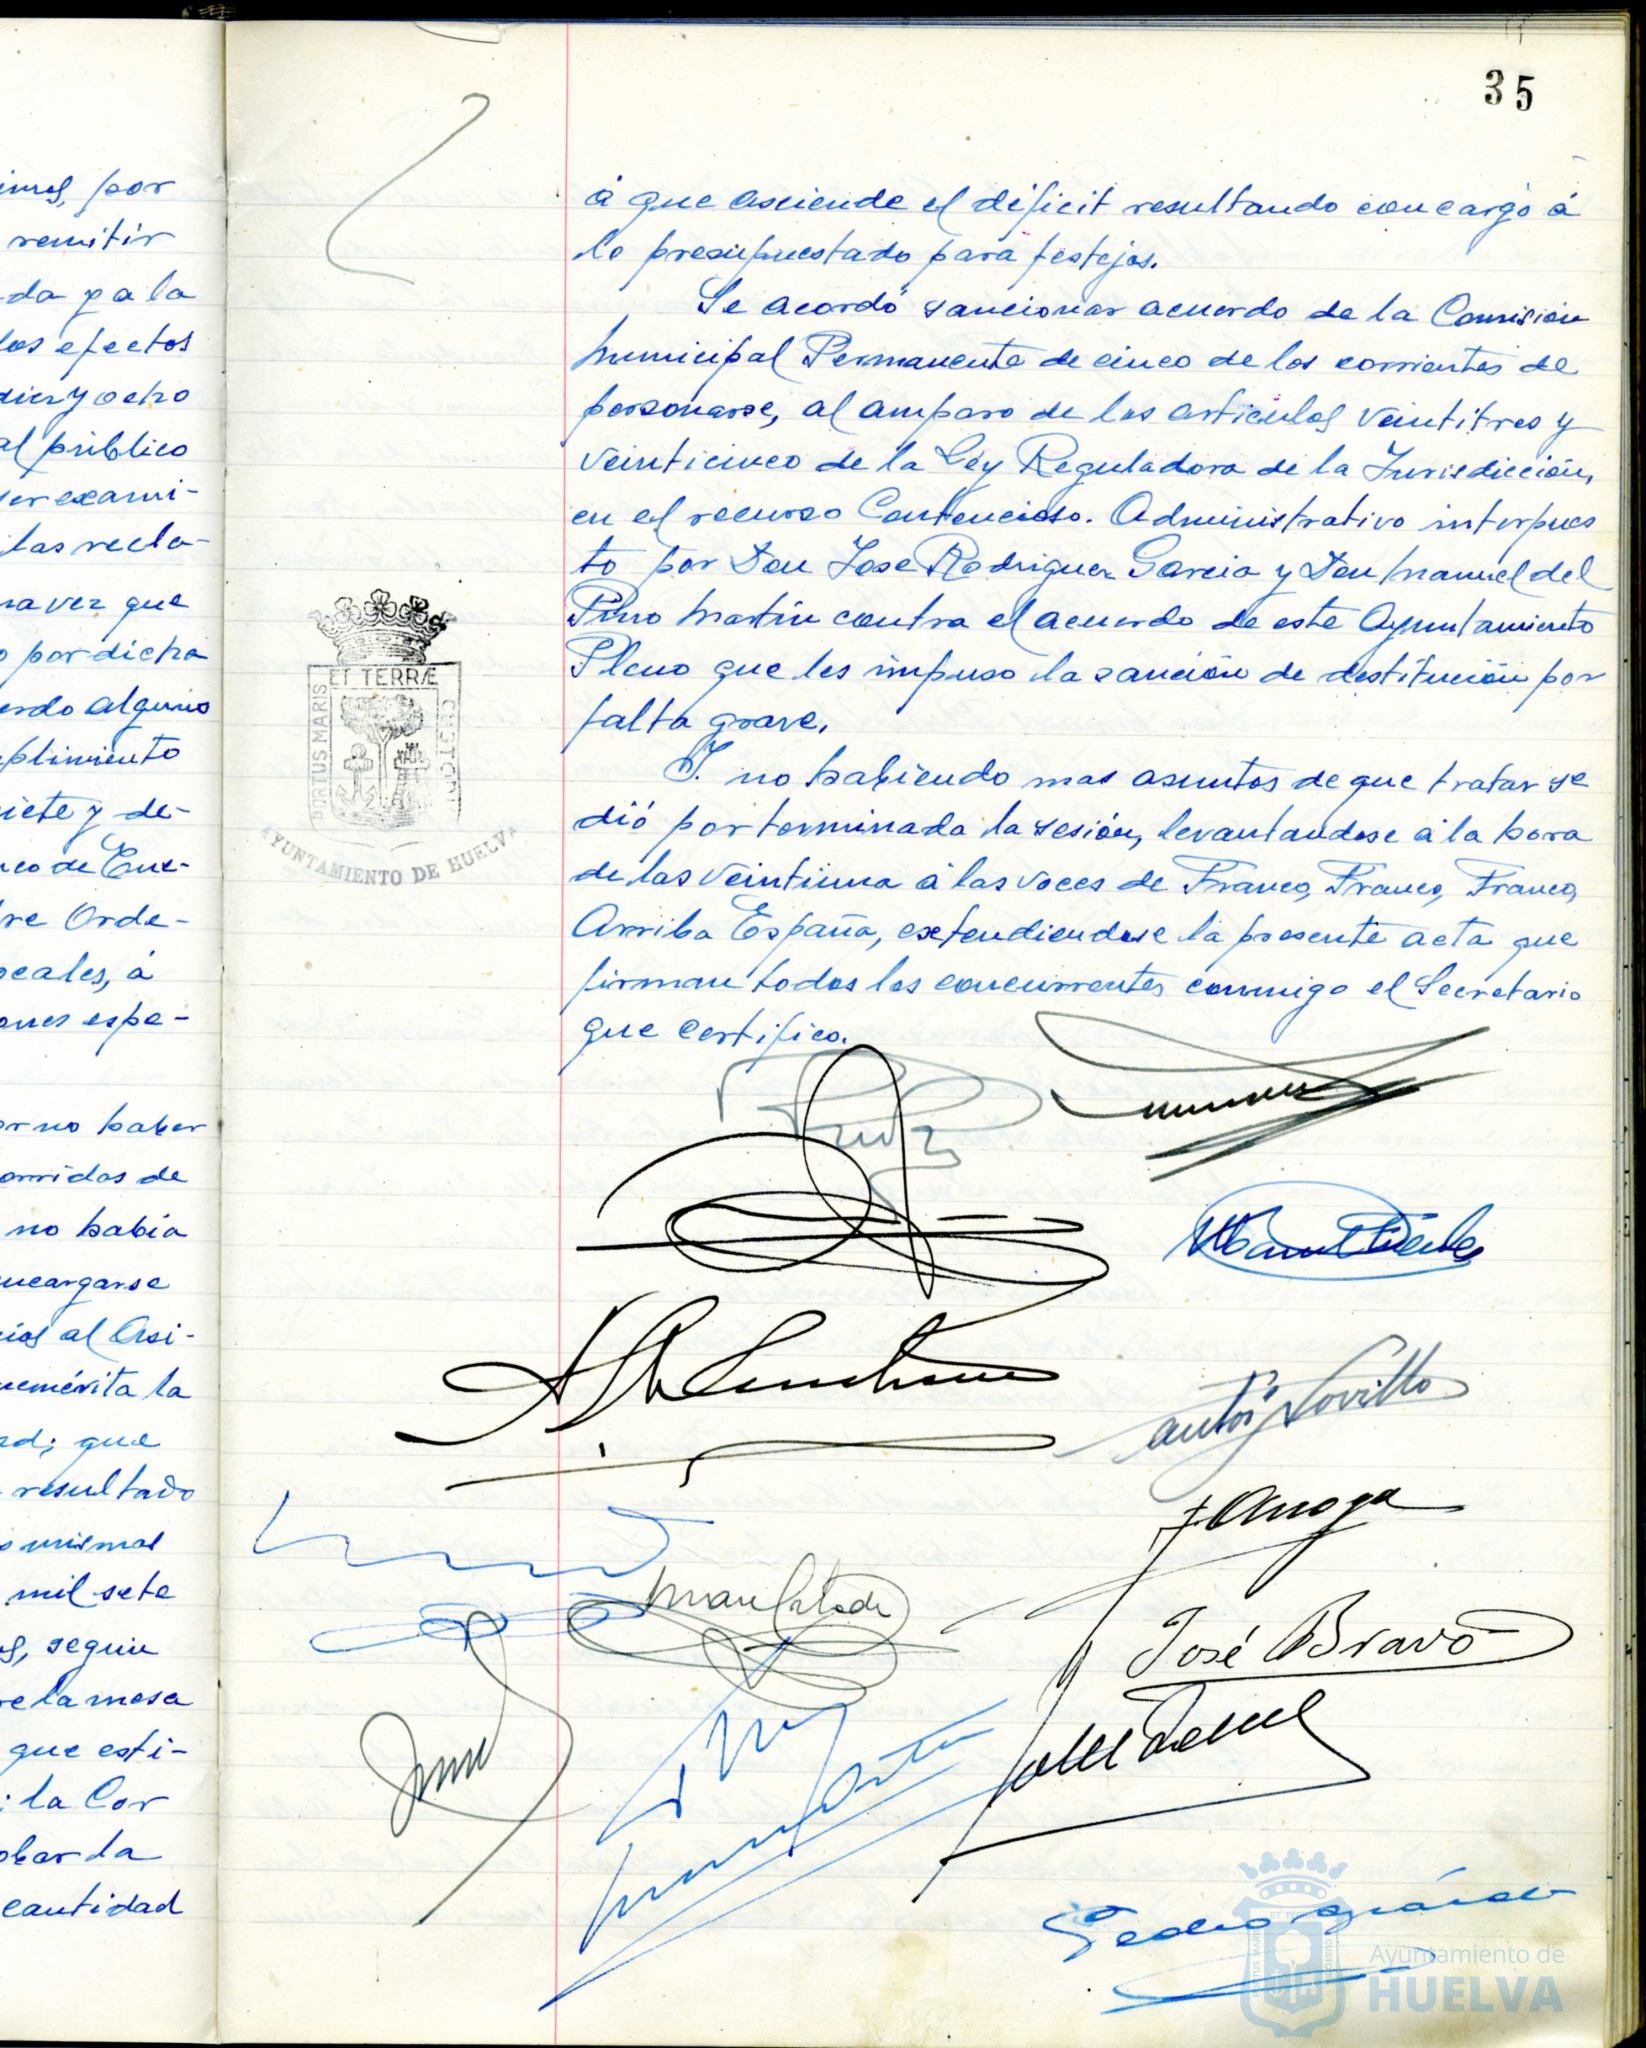 35
imas, por
remitir
da y a la
los efectos
diez y ocho
al público
ser exami-
las recla-
na vez que
o por dicha
erdo alguno
plimiento
iete y de-
nco de Ene-
re Orde-
ocales, á
ones espe-
or no haber
orridas de
no habia
ncargarse
cias al Asi-
nemérita la
ad; que
resultado
s mismas
mil sete
s, segun
re la mesa
que esti-
; la Cor
obar la
cantidad
á que asciende el déficit resultando con cargo á
lo presupuestado para festejos.
Se acordó sancionar acuerdo de la Comisión
Municipal Permanente de cinco de los corrientes de
personarse, al amparo de los articulos veintitres y
veinticinco de la Ley Reguladora de la Jurisdicción,
en el recurso Contencioso. Administrativo interpues
to por Don Jose Rodriguez Garcia y Don Manuel del
Pino Martín contra el acuerdo de este Ayuntamiento
Pleno que les impuso la sanción de destitución por
falta grave.
Y. no habiendo mas asuntos de que tratar se
dió por terminada la sesión, levantandose á la hora
de las veintiuna á las voces de Franco, Franco, Franco,
Arriba España, extendiendose la presente acta que
firman todos los concurrentes conmigo el Secretario
que certifico.
PORTUS MARIS ET TERRÆ CUSTODIA
AYUNTAMIENTO DE HUELVA
J. Arroga
José Bravo
Pedro
Ayuntamiento de
HUELVA